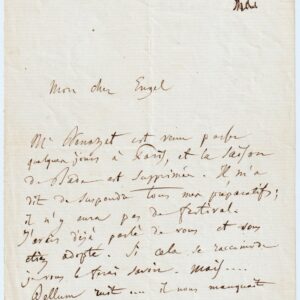 Mon cher Engel
Mr Benazet est venu passer
quelques jours à Paris, et la saison
de Bade est supprimée. Il m'a
dit de suspendre tous mes préparatifs;
il n'y aura pas de festival.
J'avais déjà parlé de vous et vous
étiez adopté. Si cela se raccommode
je vous le ferai savoir. Mais....
Bellum ruit.... il nous manquait